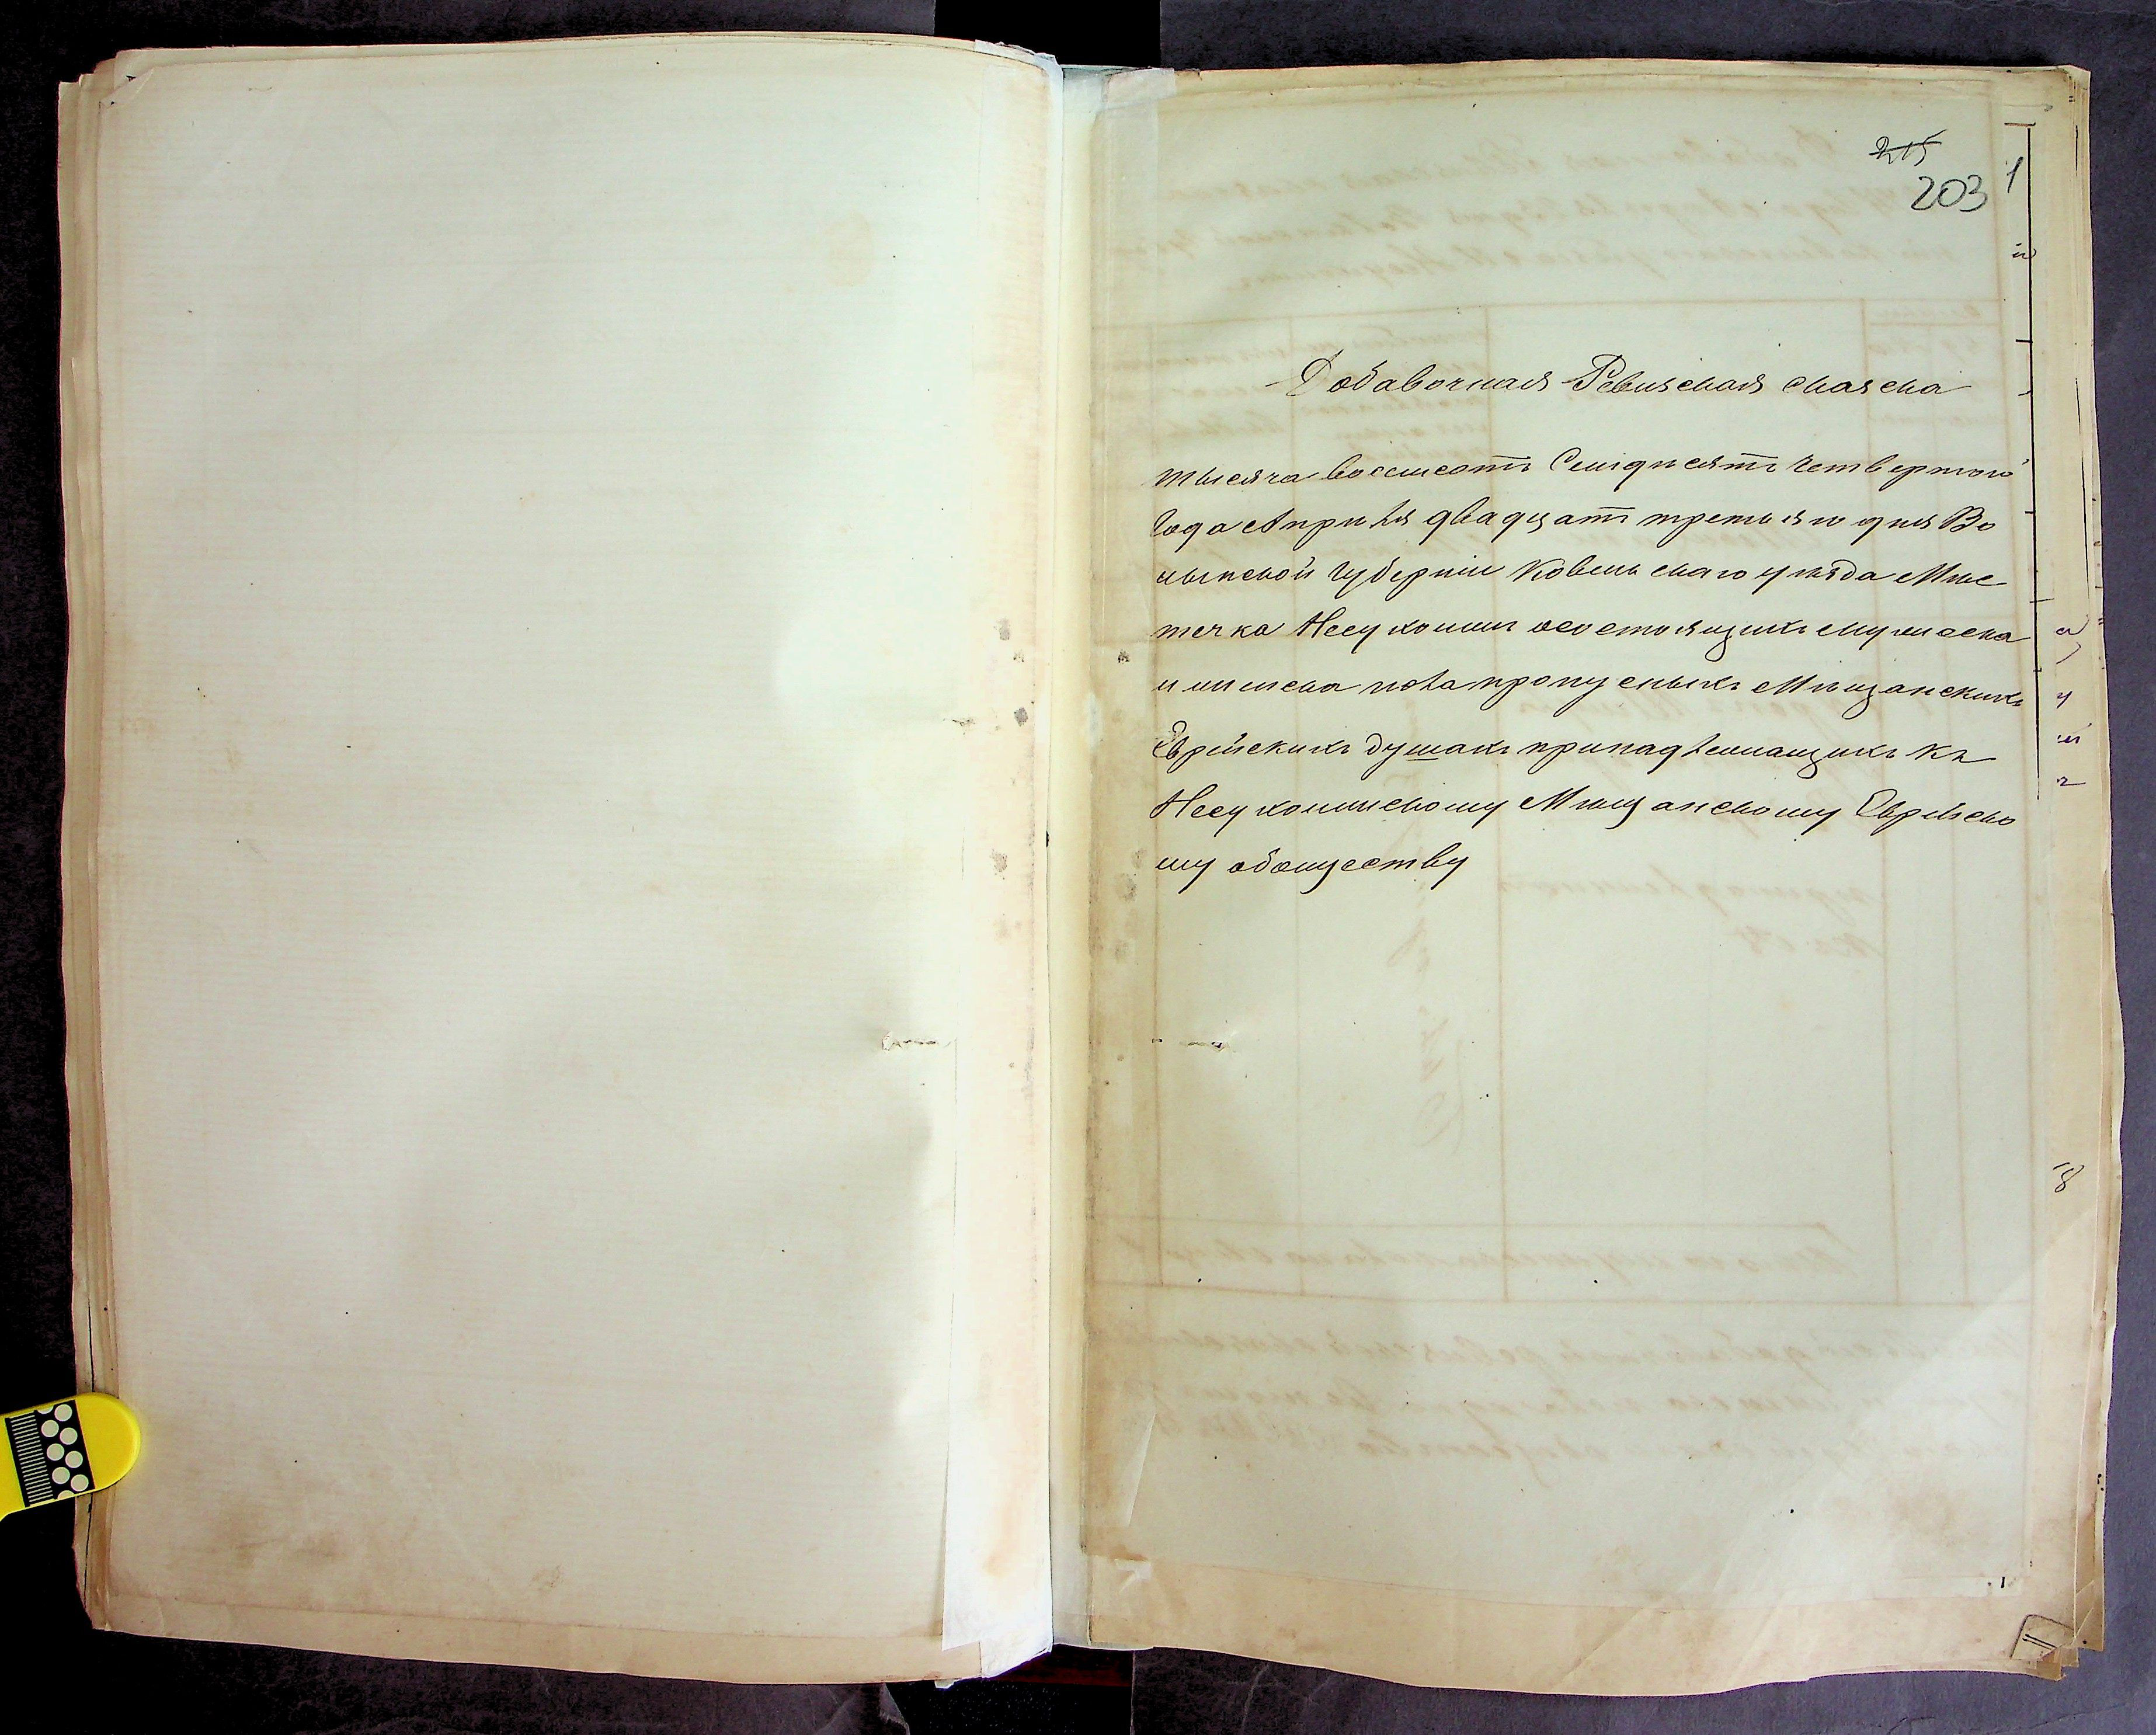 215
203
1
Добавочная Ревизская сказка
тысяча восемсотъ Семдисятъ Четвертого
Года Апреля двадцатъ третьяго дня Во
лынской Губернии Ковельскаго уѣзда Мѣс
течка Несухоижи осостоящихъ мужеска
и женска пола пропусныхъ Мѣщанскихъ
Еврейскихъ душахъ принадлежащихъ къ
Несухоижскому Мѣщанскому Еврейско
му обаществу